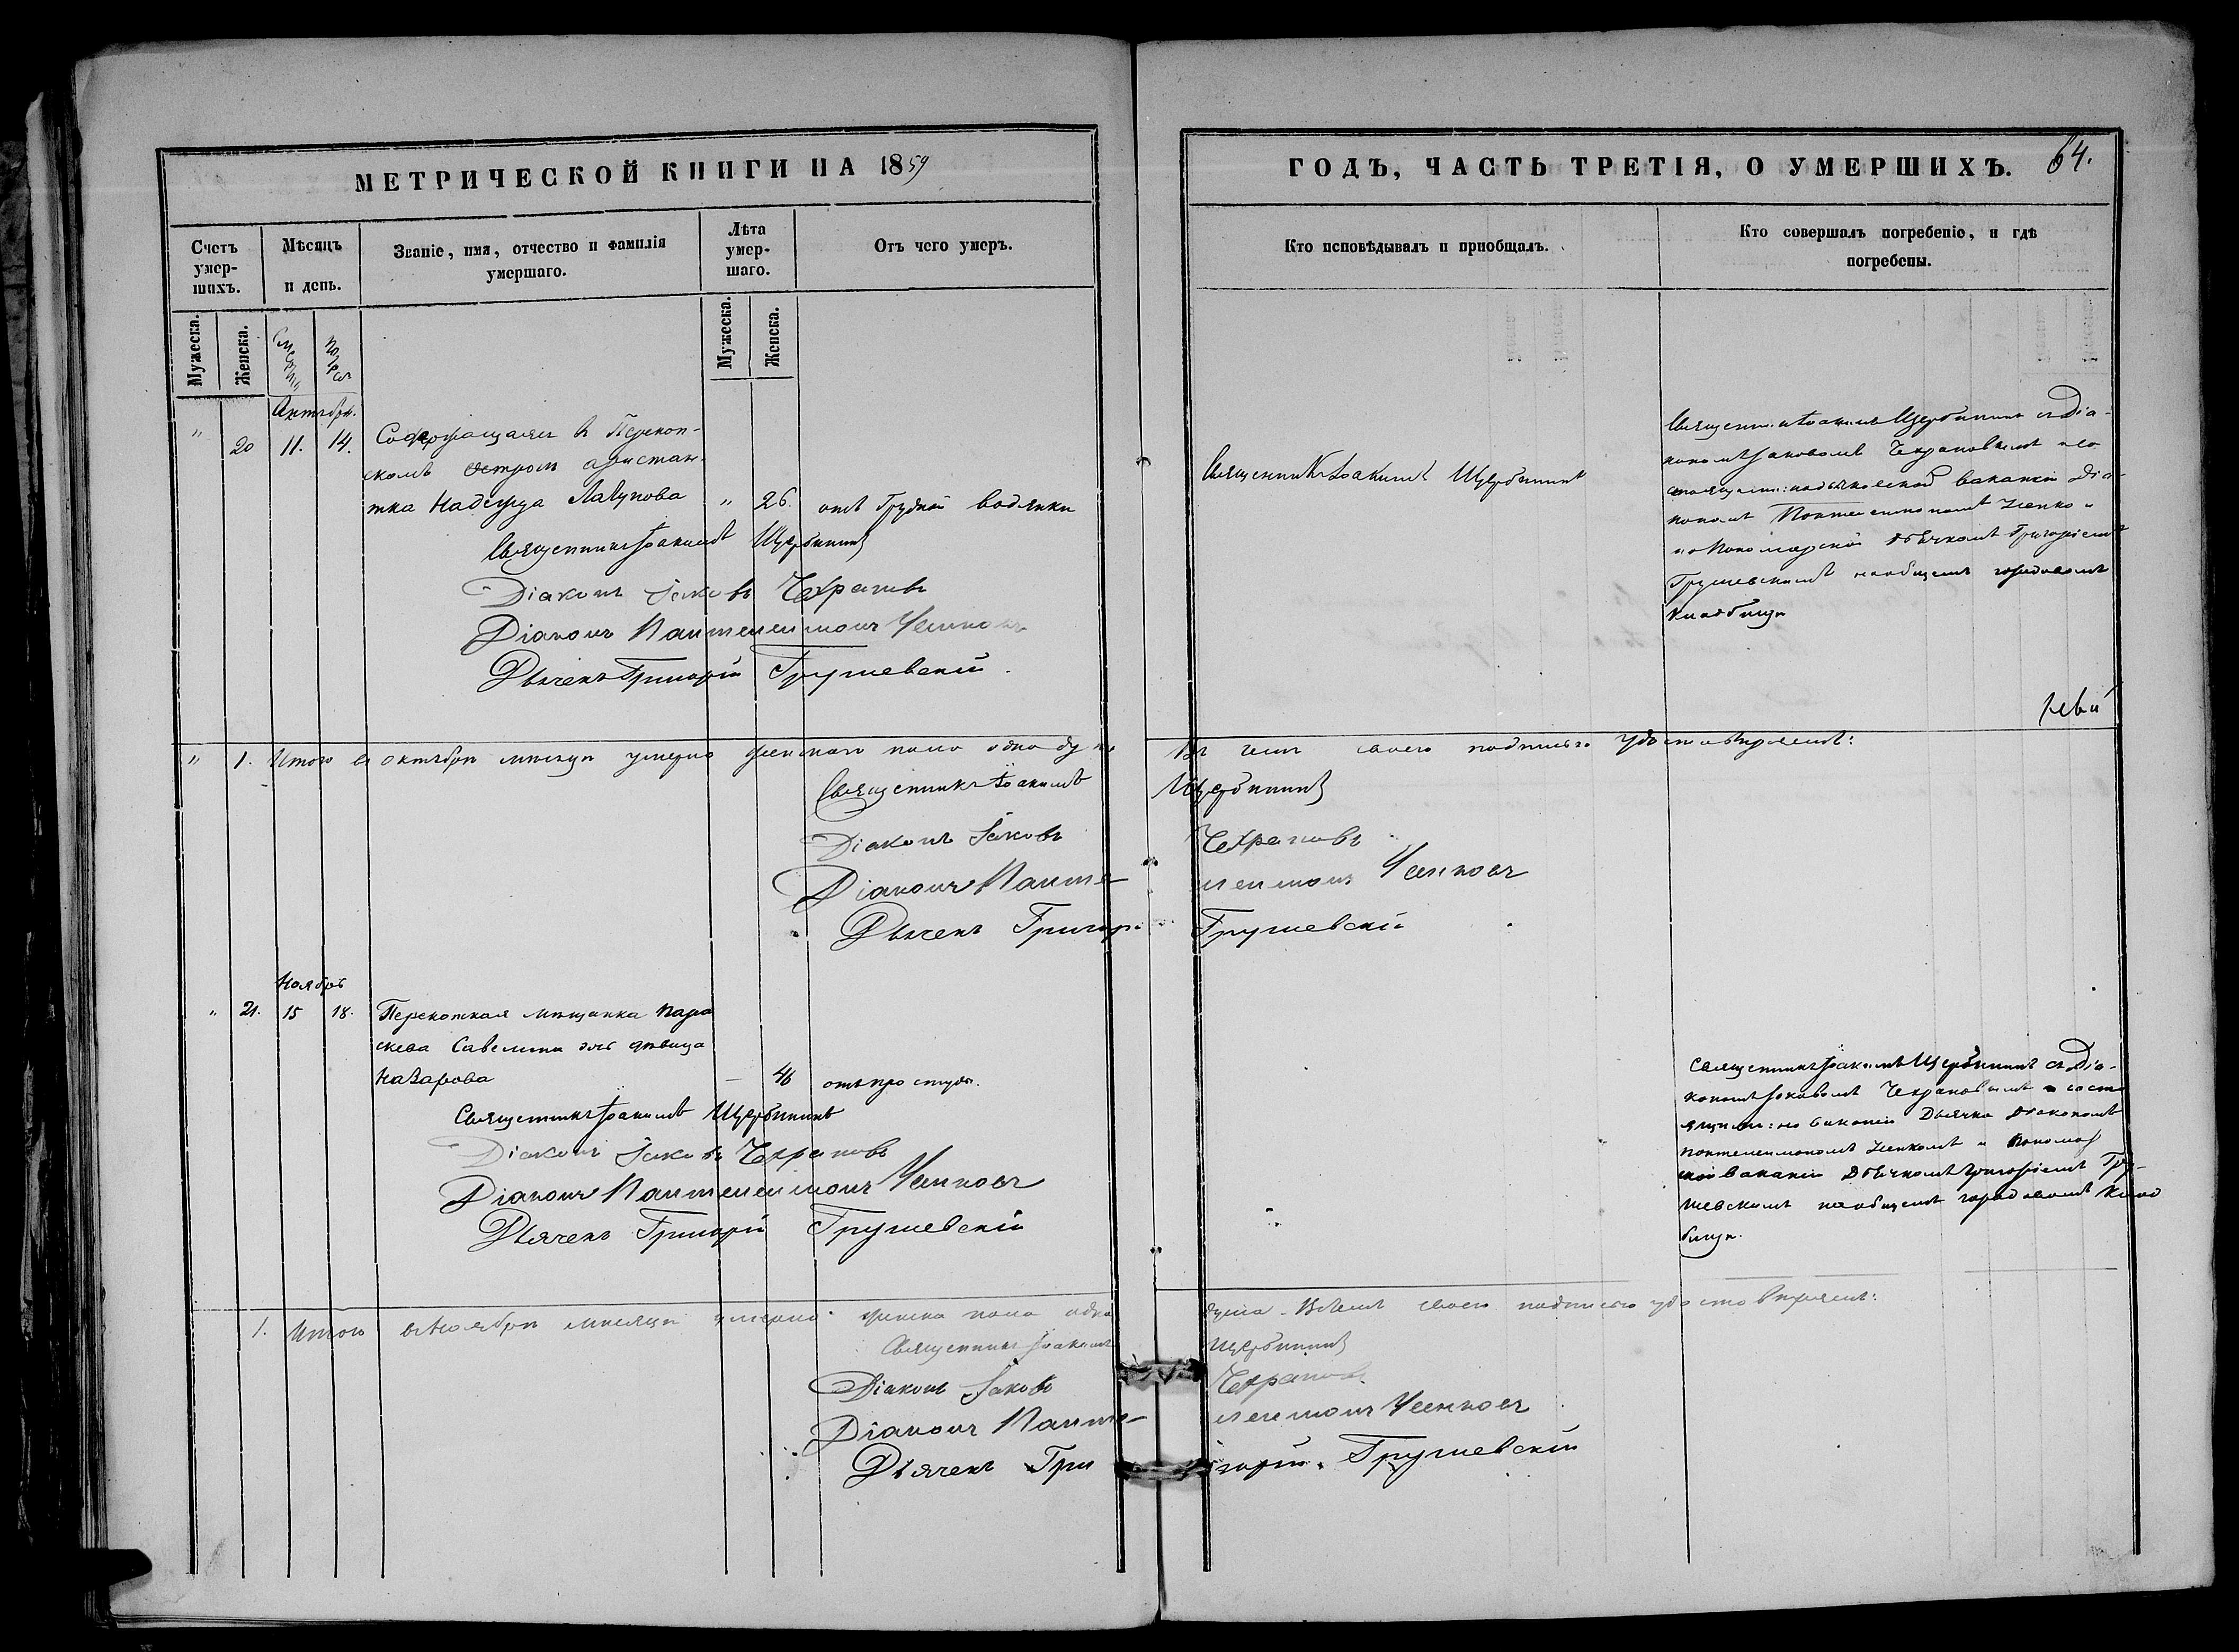 МЕТРИЧЕСКОЙ КНИГИ НА 1859
ГОДЪ, ЧАСТЬ ТРЕТІЯ, О УМЕРШИХЪ.
64.
Счетъ умер-
шихъ.
Мѣсяцъ
и день.
Званіе, имя, отчество и фамилія
умершаго.
Лѣта
умер-
шаго.
Отъ чего умеръ.
Кто исповѣдывалъ и пріобщалъ.
Кто совершалъ погребеніе, и гдѣ
погребены.
Мужеска.
Женска.
Мужеска.
Женска.
Октября.
" 20 11. 14. Содержащаяся въ Перекоп-
скомъ острогѣ арестан-
тка Надежда " 26. отъ грудной водянки
Священникъ Іоакимъ Щербининъ
Священникъ Іоакимъ Щербининъ съ Діа-
кономъ Іаковомъ Чехрановымъ и со
вакансіи Діа-
кономъ
и Пономарской Дьячкомъ Григоріемъ
Грушевскимъ на общемъ городовомъ
кладбищѣ
Священникъ Іоакимъ Щербининъ
Діаконъ Іаковъ Чехрановъ
Діаконъ Пантелеимонъ
Дьячекъ Григорій Грушевскій.
" 1. Итого въ октябрѣ мѣсяцѣ умерло женскаго пола одна душа
Въ чемъ своею подписью удостовѣряемъ:
Священникъ Іоакимъ Щербининъ
Діаконъ Іаковъ Чехрановъ
Діаконъ Панте- леимонъ
Дьячекъ Григорій Грушевскій
Ноябрь
" 21. 15 18. Перекопская мѣщанка Пара
скева Савелина дочь дѣвица
Назарова — 46 отъ простуды.
Священникъ Іоакимъ Щербининъ съ Діа-
кономъ Іаковомъ Чехрановымъ и состо
ящимъ на вакансіи Дьячка Діакономъ
Пантелеимономъ и Пономар
ской вакансіи Дьячкомъ Григоріемъ Гру-
шевскимъ на общемъ городовомъ клад
бищѣ.
Священникъ Іоакимъ Щербининъ
Діаконъ Іаковъ Чехрановъ
Діаконъ Пантелеимонъ
Дьячекъ Григорій Грушевскій
1. Итого въ Ноябрѣ мѣсяцѣ умерло женска пола одна душа. Въ чемъ своею подписью удостовѣряемъ:
Священникъ Іоакимъ Щербининъ
Діаконъ Іаковъ Чехрановъ
Діаконъ Панте- леимонъ
Дьячекъ Григорій Грушевскій